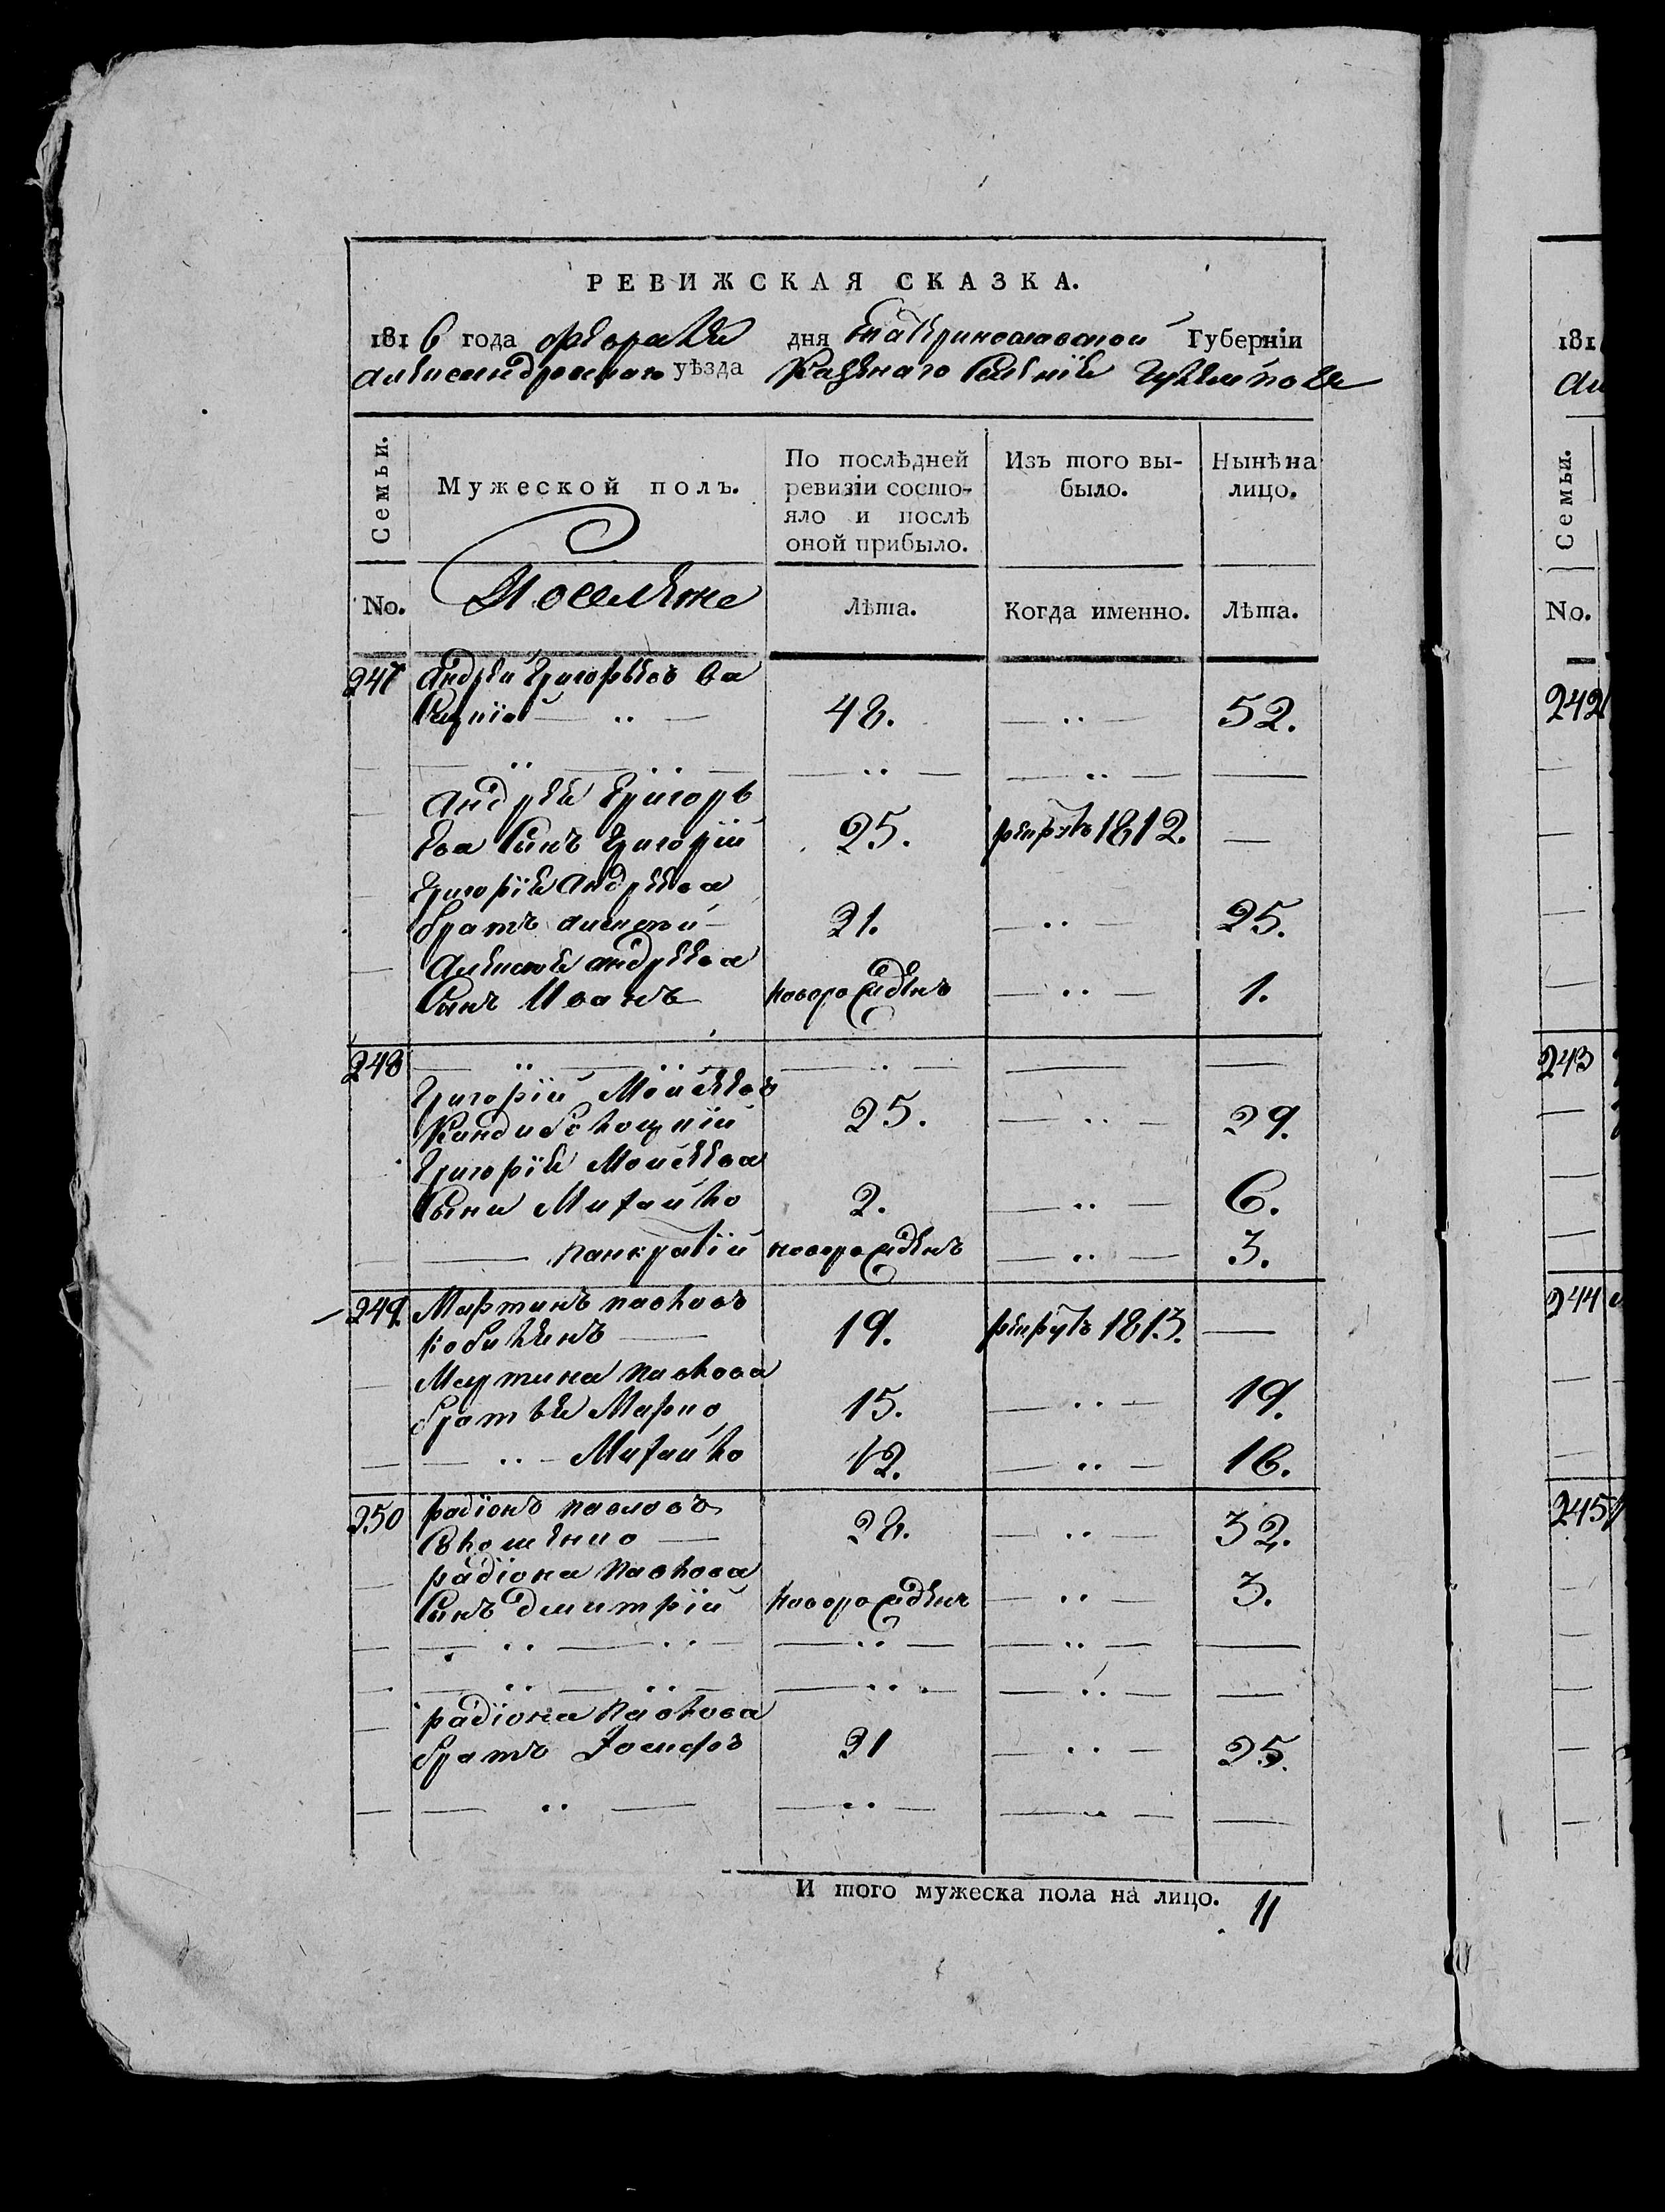 РЕВИЖСКАЯ СКАЗКА.
1816 года февраля дня Екатеринославской Губерніи
Александровского уѣзда Казенаго Селенія Гуляйполя
Семьи.
Мужеской полъ.
По послѣдней ревизіи состояло и послѣ оной прибыло.
Изъ того выбыло.
Нынѣ на лицо.
No.
Поселяне
Лѣта.
Когда именно.
Лѣта.
247 Андрей Григорьевъ Са
48. — ·· — 52.
Андрей Григорь
ева Сынъ Григорій 25. рекрутъ 1812. —
Григорія Андреева
братъ алексей — 21. — ·· — 25.
Алексея андреева
Сынъ Иванъ новорожденъ — ·· — 1.
248
Григорій Моисеевъ
25. — ·· — 29.
Григорія Моисеева
Сыни Михайло 2. — ·· — 6.
— панкратій новорожденъ — ·· — 3.
249. Мартинъ павловъ
кобилченъ — 19. рекрутъ 1813. —
Мартина павлова
братья Марко 15. — ·· — 19.
— ·· — Михайло 12. — ·· — 16.
250 радіонъ павловъ
28. — ·· — 32.
радіона павлова
Сынъ дмитрій новорожденъ — ·· — 3.
радіона павлова
братъ Іосифъ 21 — ·· — 25.
И того мужеска пола на лицо. 11
181
Семьи.
No.
242
243
244
245